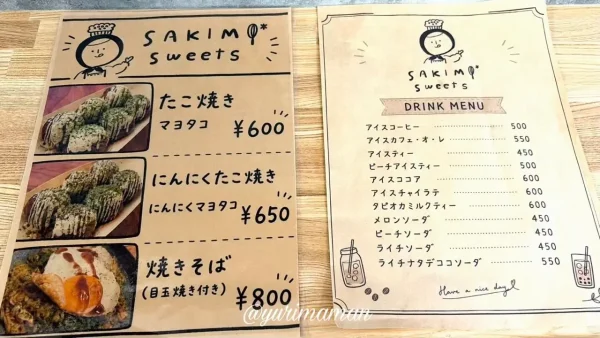 SAKIMI*
sweets
たこ焼き
マヨタコ
¥600
にんにくたこ焼き
にんにくマヨタコ
¥650
焼きそば
(目玉焼き付き)
¥800
SAKIMI*
sweets
DRINK MENU
アイスコーヒー 500
アイスカフェ・オ・レ 550
アイスティー 450
ピーチアイスティー 500
アイスココア 600
アイスチャイラテ 600
タピオカミルクティー 600
メロンソーダ 450
ピーチソーダ 450
ライチソーダ 450
ライチナタデココソーダ 550
Have a nice day
@yurimamun